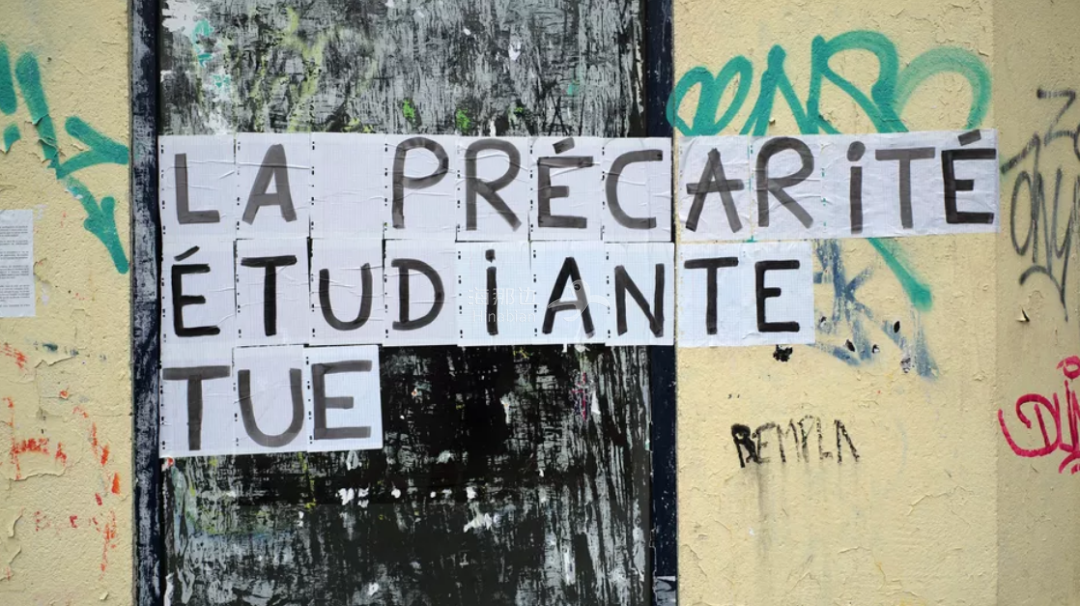 LA PRÉCARITÉ
ÉTUDIANTE
TUE
REMPLA